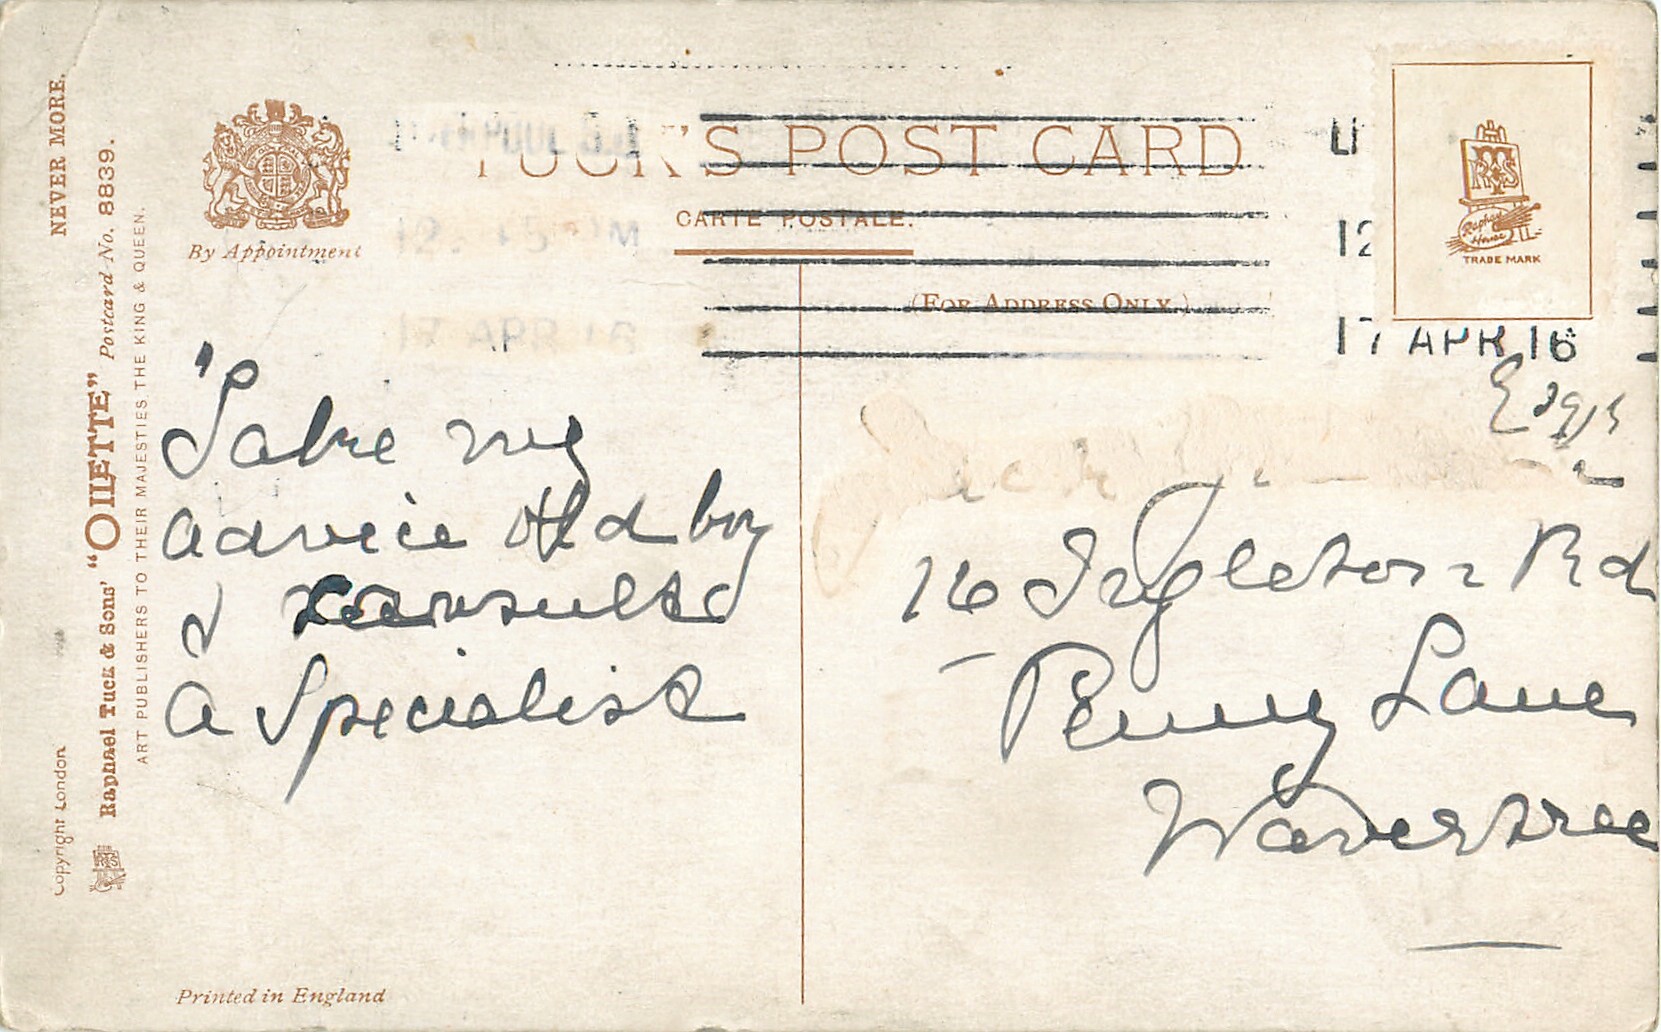 NEVER MORE.
Raphael Tuck & Sons' "OILETTE" Postcard No. 8839.
ART PUBLISHERS TO THEIR MAJESTIES THE KING & QUEEN.
Copyright London
By Appointment
TUCK'S POST CARD
CARTE POSTALE.
(FOR ADDRESS ONLY.)
12
17 APR 16
17 APR 16
RTS
Raphael
House
TRADE MARK
"Take my
advice old boy
&
a Specialist
Esqr
16 Ingleton Rd
Penny Lane
Wavertree
Printed in England